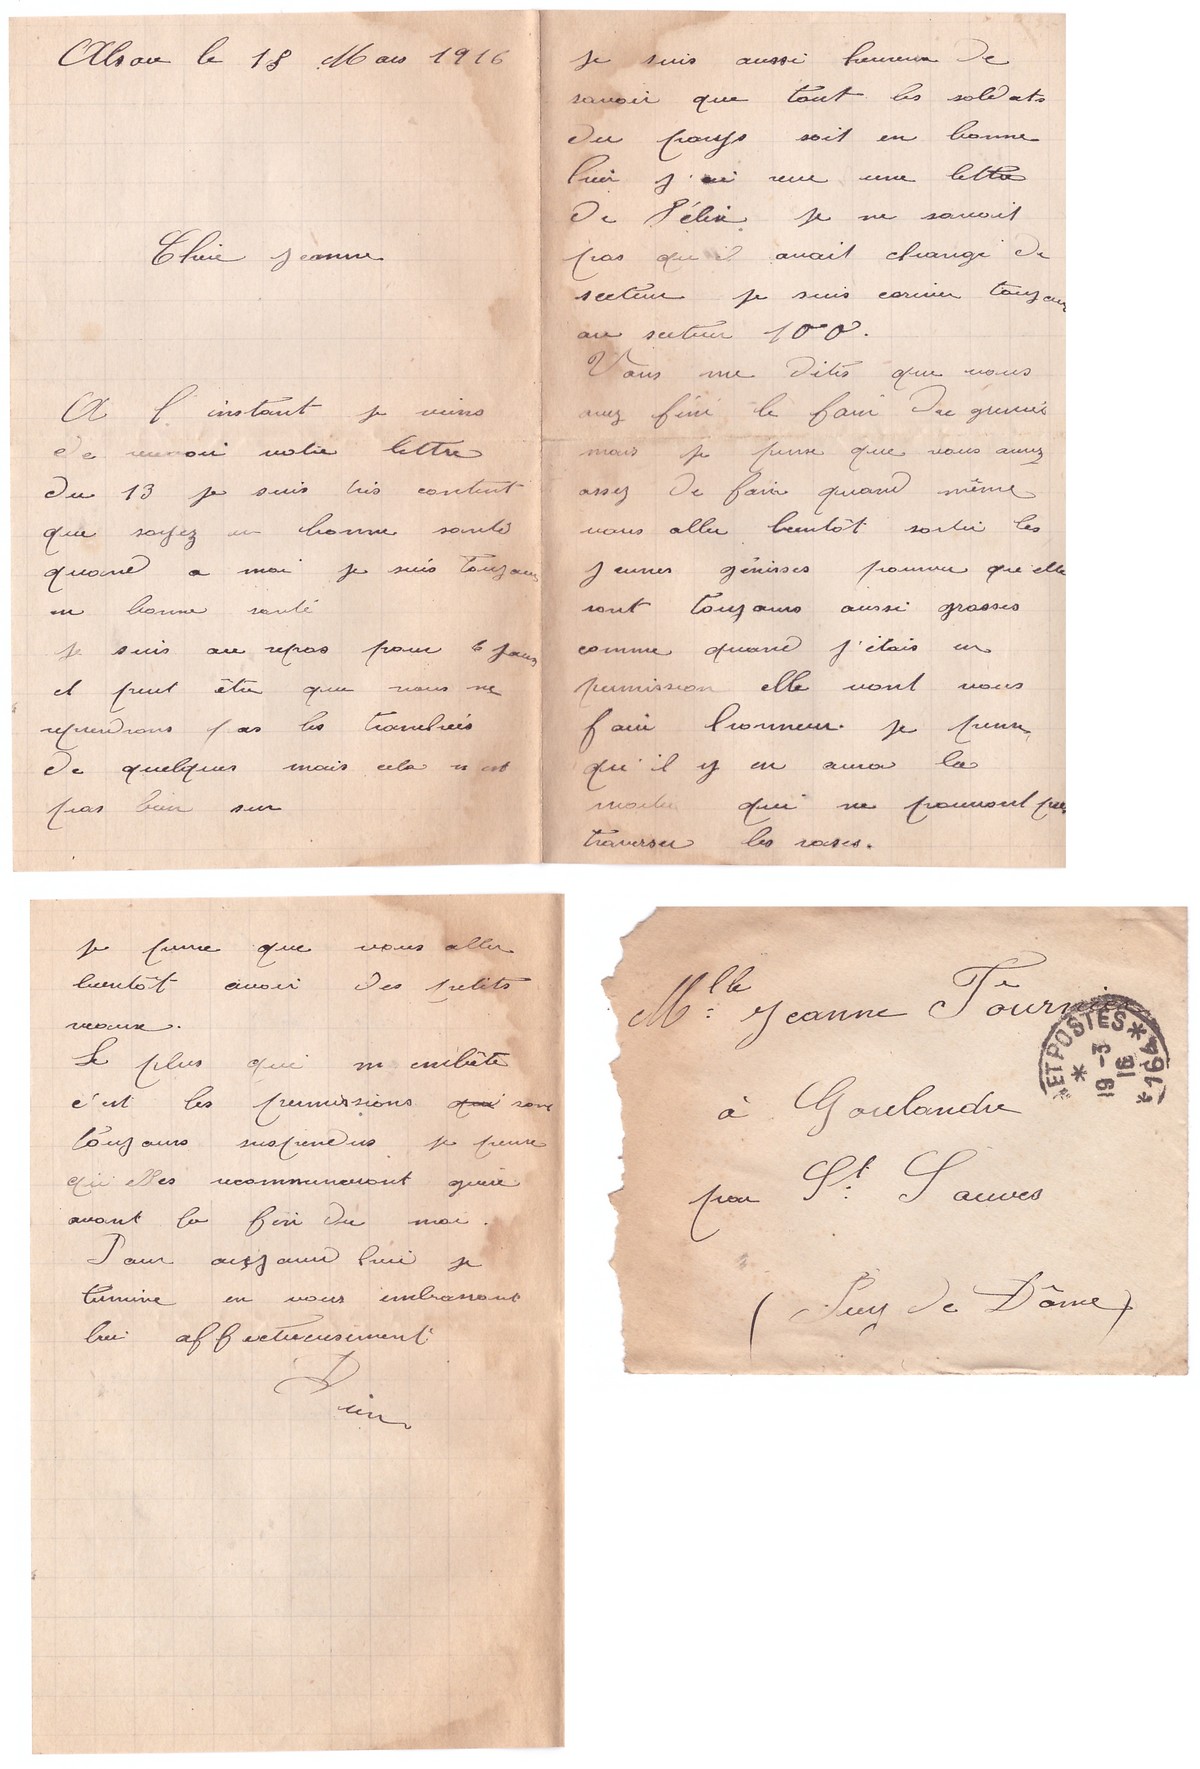 Alsace le 18 Mars 1916
Chère Jeanne
A l'instant je viens
de recevoir votre lettre
du 13 je suis très content
que soyez en bonne santé
quand a moi je suis toujours
en bonne santé
je suis au repos pour 6 jours
et peut être que nous ne
reprendrons pas les tranchées
de quelques mais cela n'est
pas bien sur
je suis aussi heureux de
savoir que tout les soldats
du pays soit en bonne
j'ai reçue une lettre
de Félix je ne savait
pas qu'il avait changé de
secteur je suis toujours
au secteur 100.
Vous me dites que vous
avez fini le foin du grenier
mais je pense que vous aurez
assez de foin quand même
vous aller bientôt sortir les
jeunes génisses pourvu qu'elle
sont toujours aussi grasses
comme quand j'étais en
permission elle vont vous
fair honneur. je pense
qu'il y en aura la
moitié qui ne pourront pas
traverser les rases.
je pense que vous aller
bientôt avoir des petits
veaux.
Le plus qui m'embête
c'est les permissions qui sont
toujours suspendus je pense
qu'elles recommenceront guère
avant la fin du moi.
Pour aujourd'hui je
termine en vous embrassant
bien affectueusement
Mlle Jeanne Fournier
à Goulandre
par St Sauves
(Puy de Dôme)
ET POSTES
19 -3
16
*164*